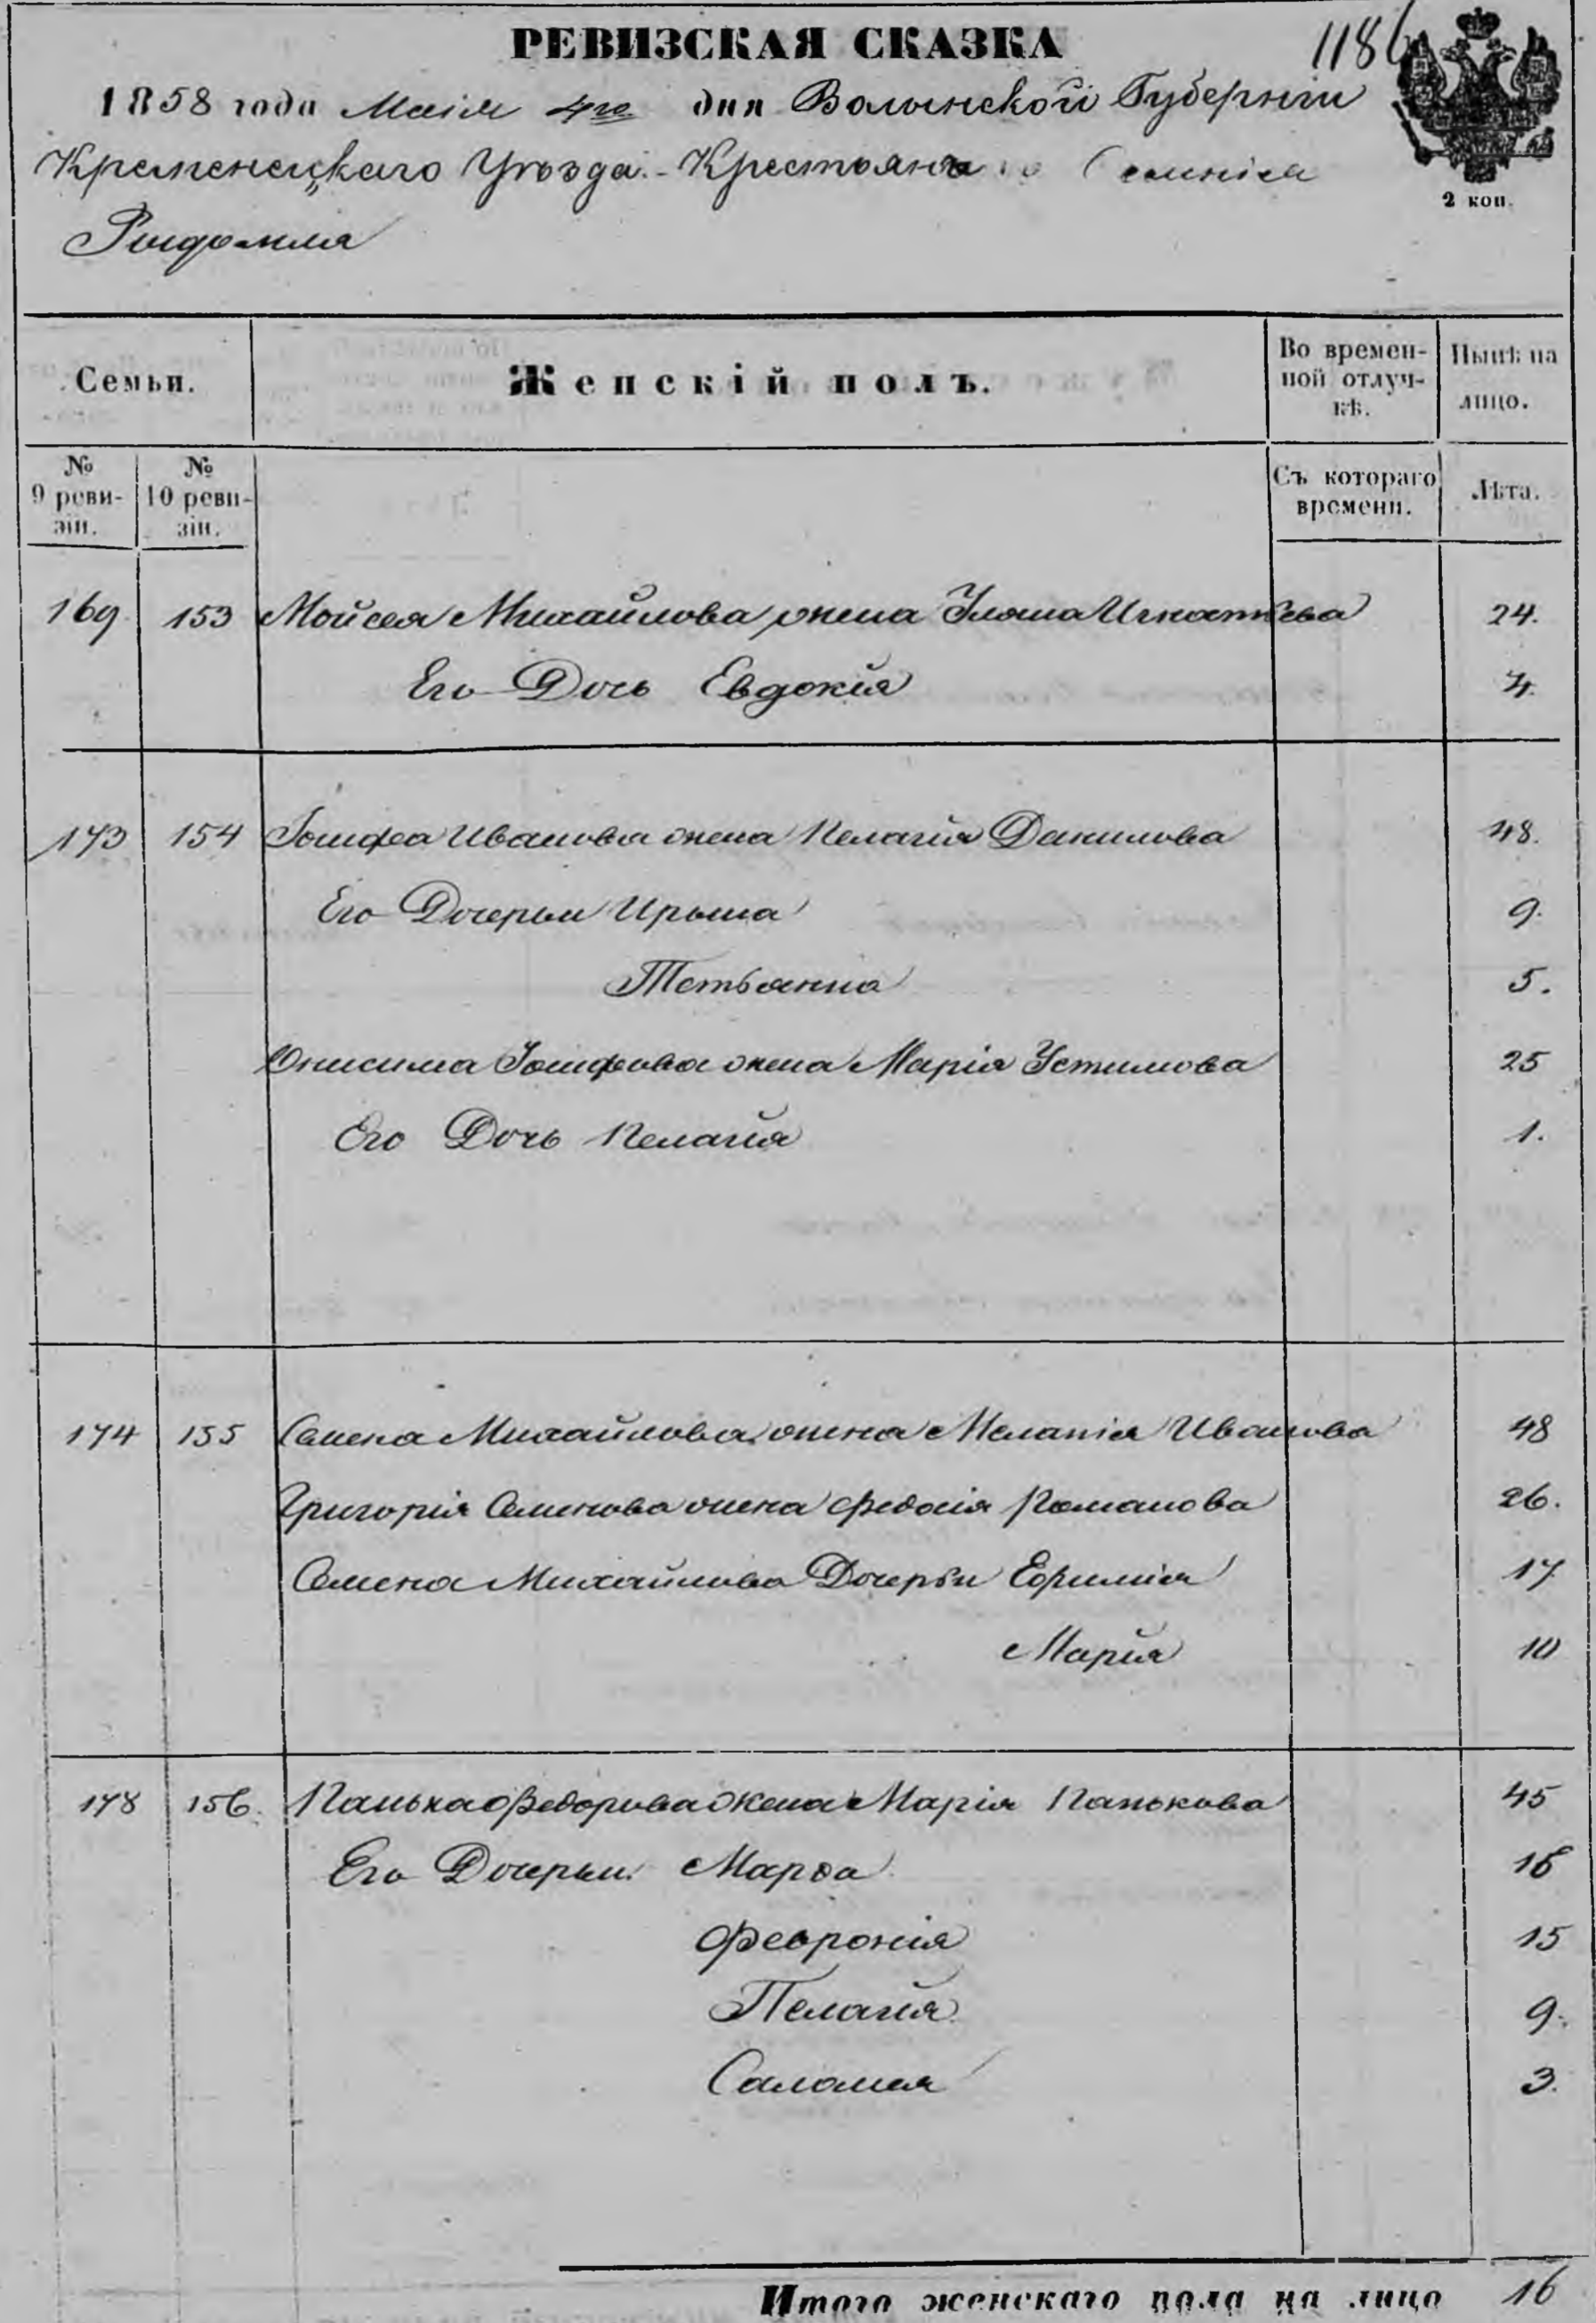 РЕВИЗСКАЯ СКАЗКА
1186
1858 года Маія 4го дня Волынской Губерніи
2 коп.
Кременецкаго Уѣзда Крестьянъ Селенія
Рыдомля
Семьи.
Женскій полъ.
Во времен-
ной отлуч-
кѣ.
Нынѣ на
лицо.
№
9 реви-
зіи.
№
10 реви-
зіи.
Съ котораго
времени.
Лѣта.
169 153 Мойсея Михайлова жена Уляна Игнатьева 24.
Его Дочь Евдокія 4.
173 154 Іосифа Иванова жена Пелагія Данилова 48.
Его Дочерьи Ирына 9.
Тетьянна 5.
Онисима Іосифова жена Марія Устимова 25
Его Дочь Пелагія 1.
174 155 Семена Михайлова жена Меланія Иванова 48
Григорія Семенова жена Федосія Романова 26.
Семена Михайлова Дочерьи Ефимія 17
Марія 10
178 156. Панька Федорова жена Марія Панькова 45
Его Дочерьи Марѳа 16
Февронія 15
Пелагія 9.
Саломея 3.
Итого женскаго пола на лицо 16